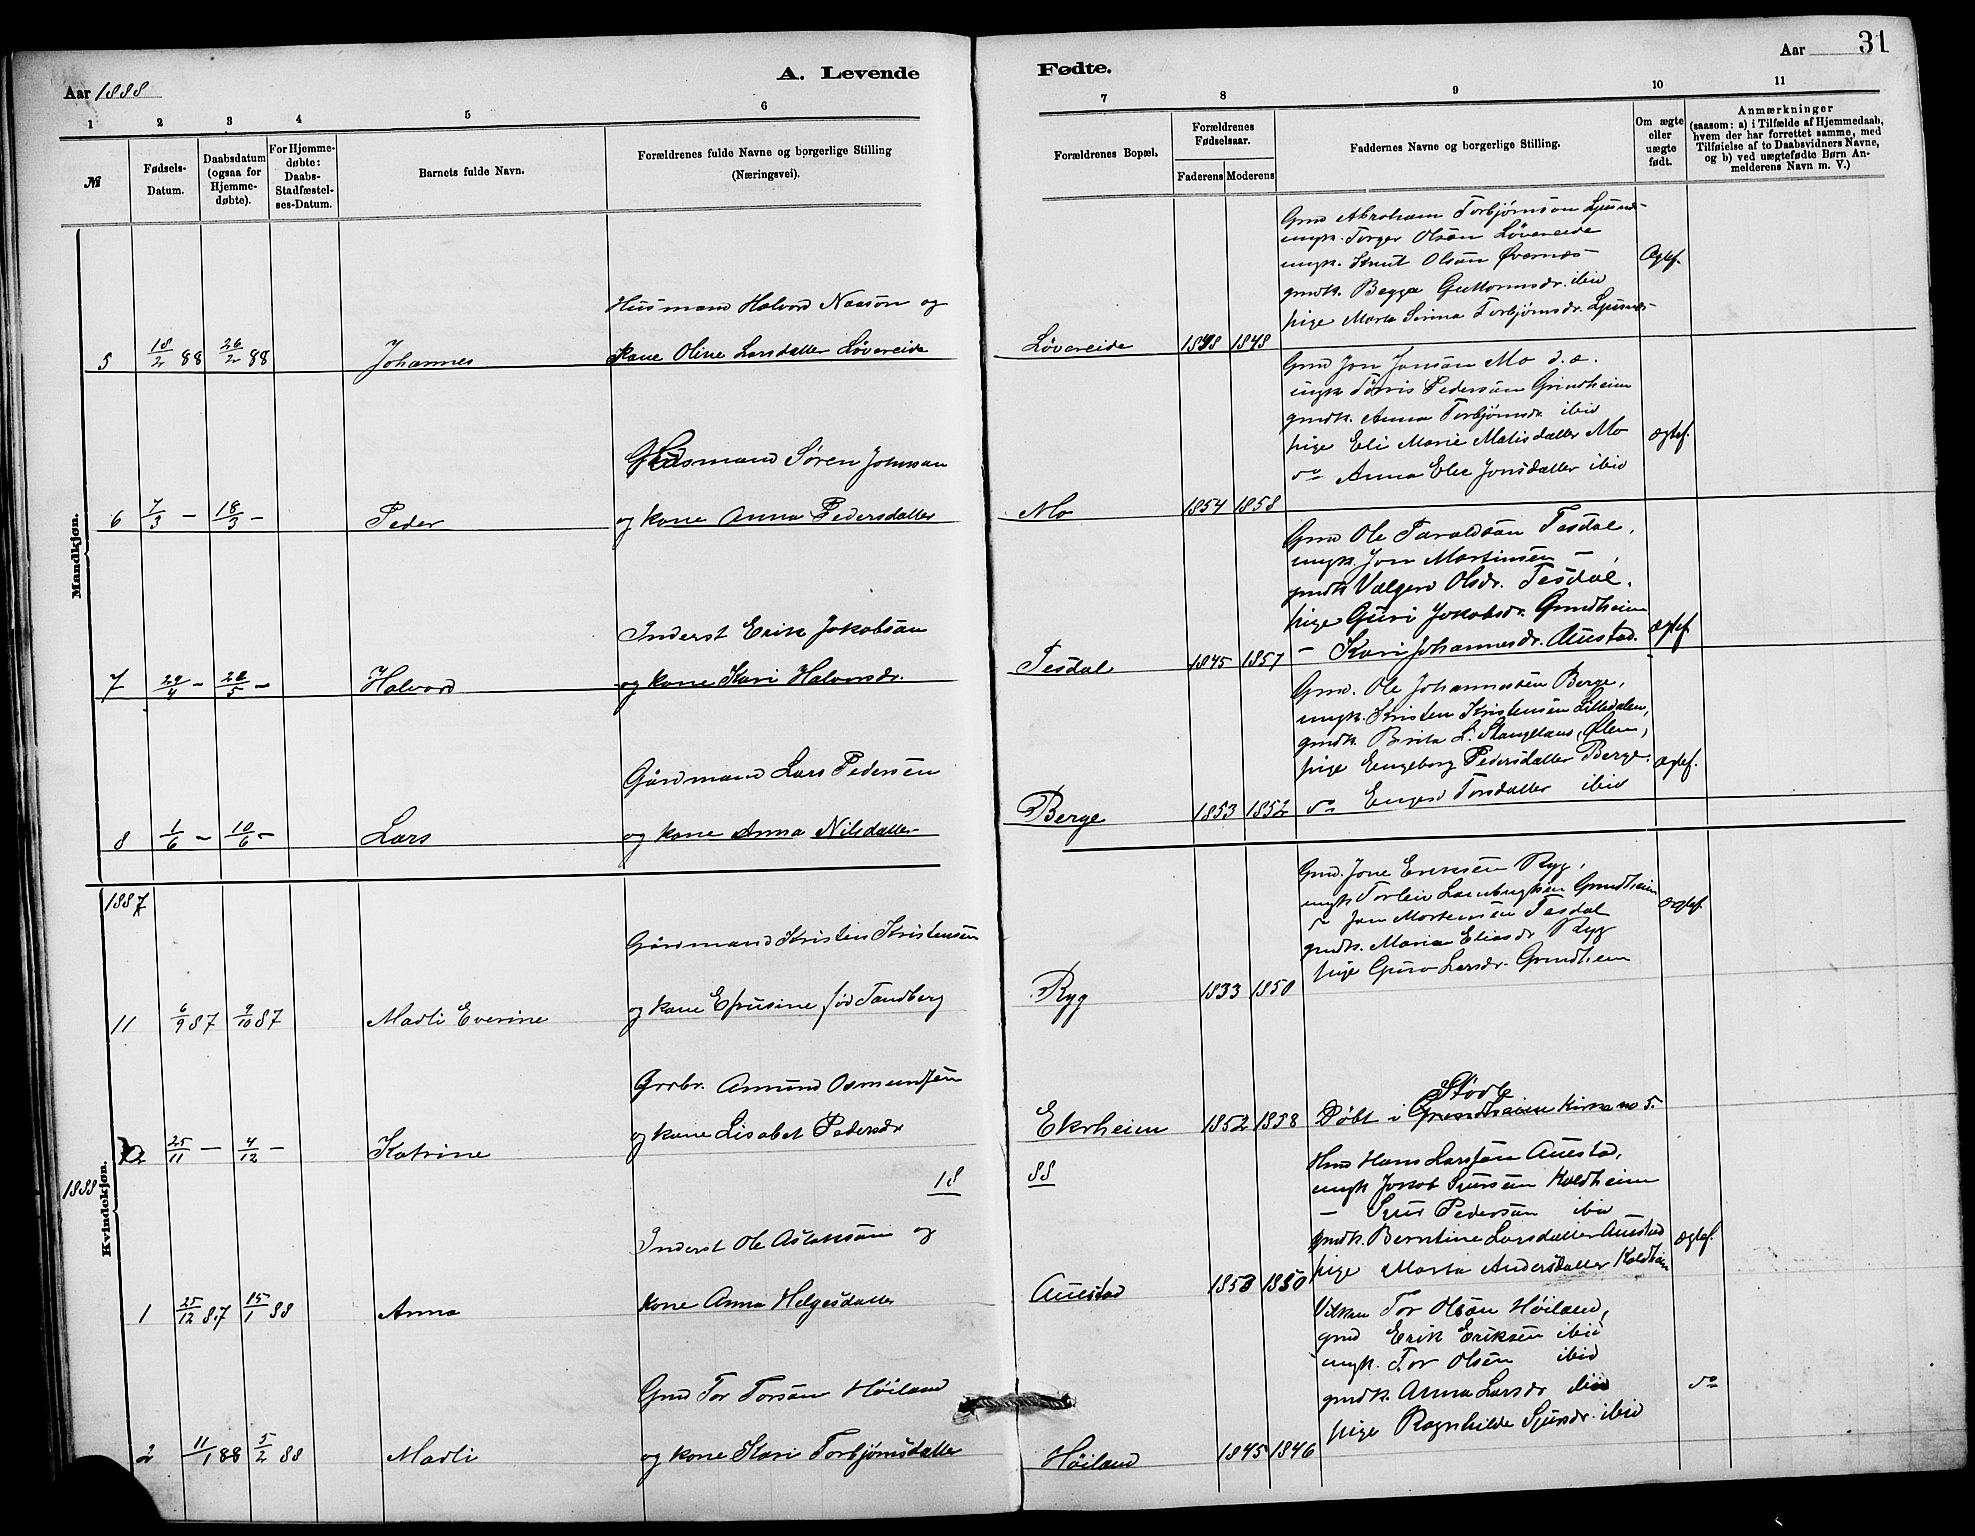 Aar 1888
A. Levende
Fødte.
Aar 31
1 2 3 4 5 6 7 8 9 10 11
№
Fødsels-Datum.
Daabsdatum (ogsaa for Hjemme-døbte).
For Hjemme-døbte: Daabs-Stadfæstel-ses-Datum.
Barnets fulde Navn.
Forældrenes fulde Navne og borgerlige Stilling
(Næringsvei).
Forældrenes Bopæl.
Forældrenes Fødselsaar.
Faderens Moderens
Faddernes Navne og borgerlige Stilling.
Om ægte eller uægte født.
Anmærkninger
(saasom: a) i Tilfælde af Hjemmedaab,
hvem der har forrettet samme, med
Tilføielse af to Daabsvidners Navne,
og b) ved uægtefødte Børn An-
melderens Navn m. V.)
Mandkjøn.
5 18/2 88 26/2 88 Johannes
Husmand Halvord Naason og
kone Oline Larsdatter Løvereide
Løvereide 1848 1848
Gmd Abraham Torbjørnson Ljusnes
ungk. Torger Olson Løvereide
ungk. Knut Olson Øvernes
gmdk. Begga Guttormsdr. ibid
pige Marta Serina Torbjørnsdr. Ljusnes
Ægtef.
6 7/3 – 18/3 – Peder
Husmand Søren Johnson
og kone Anna Pedersdatter
Mo 1854 1858
Gmd Jon Jonson Mo d.æ.
ungk. Tørris Pederson Grindheim
gmdk. Anna Torbjørnsdr. ibid
pige Eli Marie Matisdatter Mo
do Anna Elie Jonsdatter ibid
ægtef.
7 29/4 – 28/5 – Halvord
Inderst Erik Jakobson
og kone Kari Halvorsdr.
Tesdal 1845 1857
Gmd Ole Taraldson Tesdal,
ungk. Jon Martinsen –,
gmdk Valgerd Olsdr. Tesdal,
pige Guri Jokobsdr. Grindheim
– Kari Johannesdr. Austad.
ægtef.
8 1/6 – 10/6 – Lars
Gårdmand Lars Pedersen
og kone Anna Nilsdatter
Berge 1853 1852
Gmd. Ole Johannesen Berge,
ungk. Kristen Kristensen Lilledalen,
gmdk. Brita L. Stangeland, Ølen,
pige Engeborg Pedersdatter Berge.
do Engerd Torsdatter ibid
ægtef.
1887
Kvindekjøn.
11 6/9 87 9/10 87 Madli Everine
Gårdmand Kristen Kristensen
og kone Efrusine fød Tandberg
Ryg 1833 1850
Gmd. Jone Eriksen Ryg,
ungk Torlein Grindheim
do Jon Mortensen Tesdal
gmdk. Maria Eliasdr Ryg
pige Guro Larsdr. Grindheim
ægtef.
12 25/11 – 4/12 – Katrine
Grdbr. Amund Osmundsen
og kone Lisabet Pedersdr
Ekrheim 1852 1858
Stødle
Døbt i Grindheim Kirke no 5.
1888
18 88
1 25/12 87 15/1 88 Anna
Inderst Ole Aslakson og
kone Anna Helgesdatter
Auestad 1853 1850
Hmd Hans Larsson Auestad,
ungk Jokob Sjursen Koldheim
– Sjur Pederson ibid
gmdk. Berntine Larsdatter Auestad
pige Marta Andersdatter Koldheim
ægtef.
2 11/1 88 5/2 88 Madli
Gmd Tor Torson Høiland
og kone Kari Torbjørnsdatter
Høiland 1845 1846
Tor Olson Høiland,
gmd Erik Eriksen ibid
ungk. Tor Olsen ibid
gmdk. Anna Larsdr ibid
pige Ragnhilde Sjursdr. ibid
do